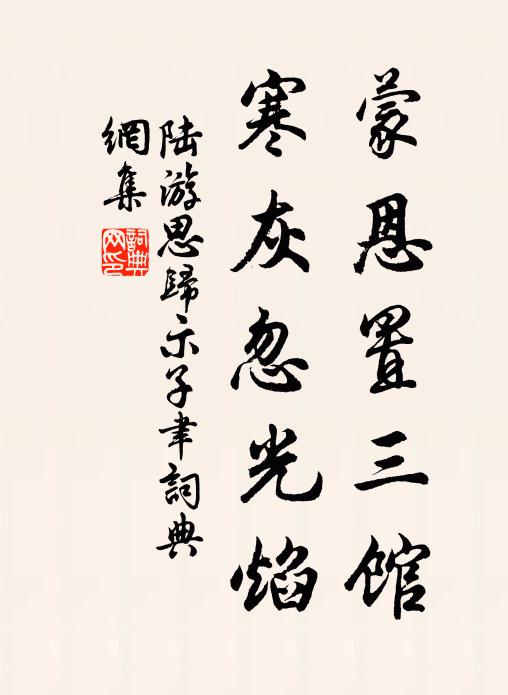 蒙恩置三馆
寒灰忽光焰
陆游思歸示子聿詞典
網集
詞典
网印